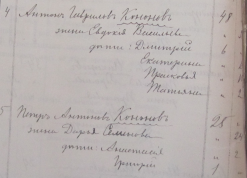 4 Антонъ Гавриловъ Кононовъ 48
жена Евдокія Васильева
дѣти: Димитрій 6
Екатерина
Прасковья
Татьяна
5 Петръ Антоновъ Кононовъ 28
жена Дарья Семенова
дѣти Анастасія
Григорій 1